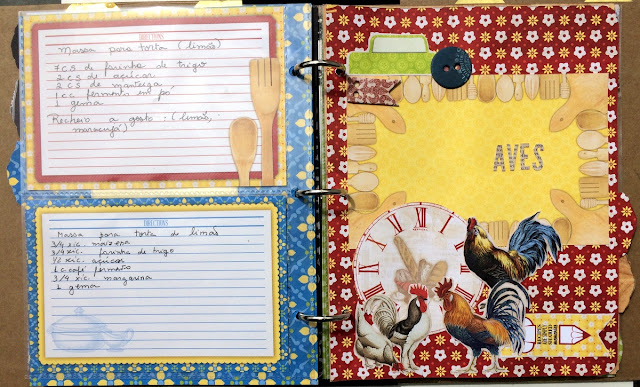 DIRECTIONS
Massa para torta (limão)
7 CS de farinha de trigo
2 CS de açúcar
2 CS de manteiga
1 cc fermento em pó
1 gema
Recheio a gosto: (limão,
maracujá)
DIRECTIONS
Massa para torta de limão
3/4 xic. maizena
3/4 xic. farinha de trigo
1/2 xic. açúcar
1 c. café fermento
3/4 xic. margarina
1 gema
AVES
XII
I
II
III